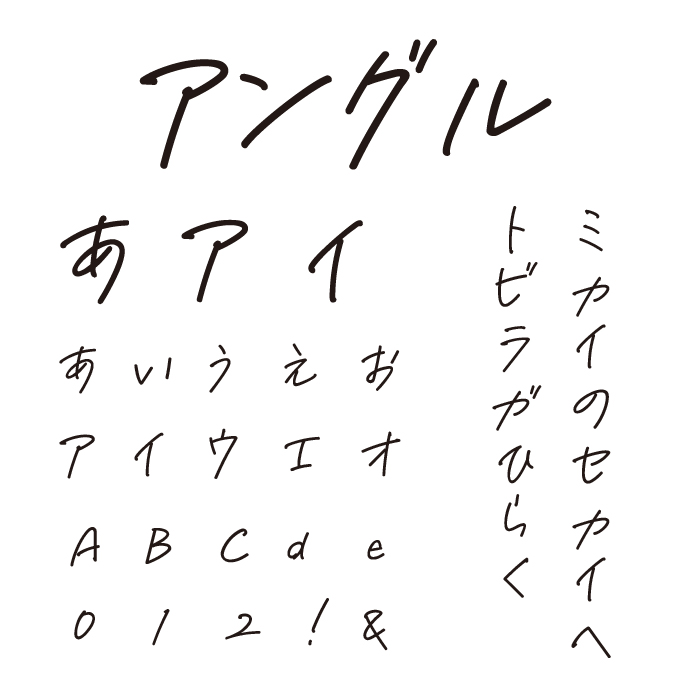 アングル
あアイ
あいうえお
アイウエオ
ABCde
012!&
ミカイのセカイへ
トビラガひらく